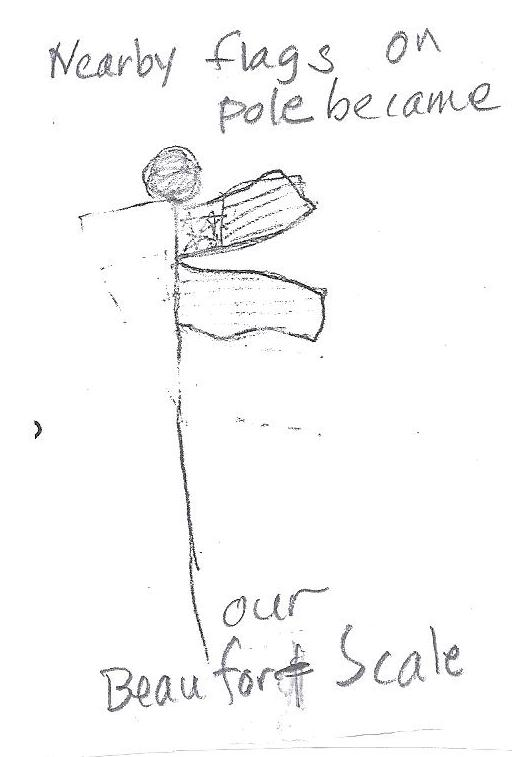 Nearby flags on
pole became
our
Beaufort Scale